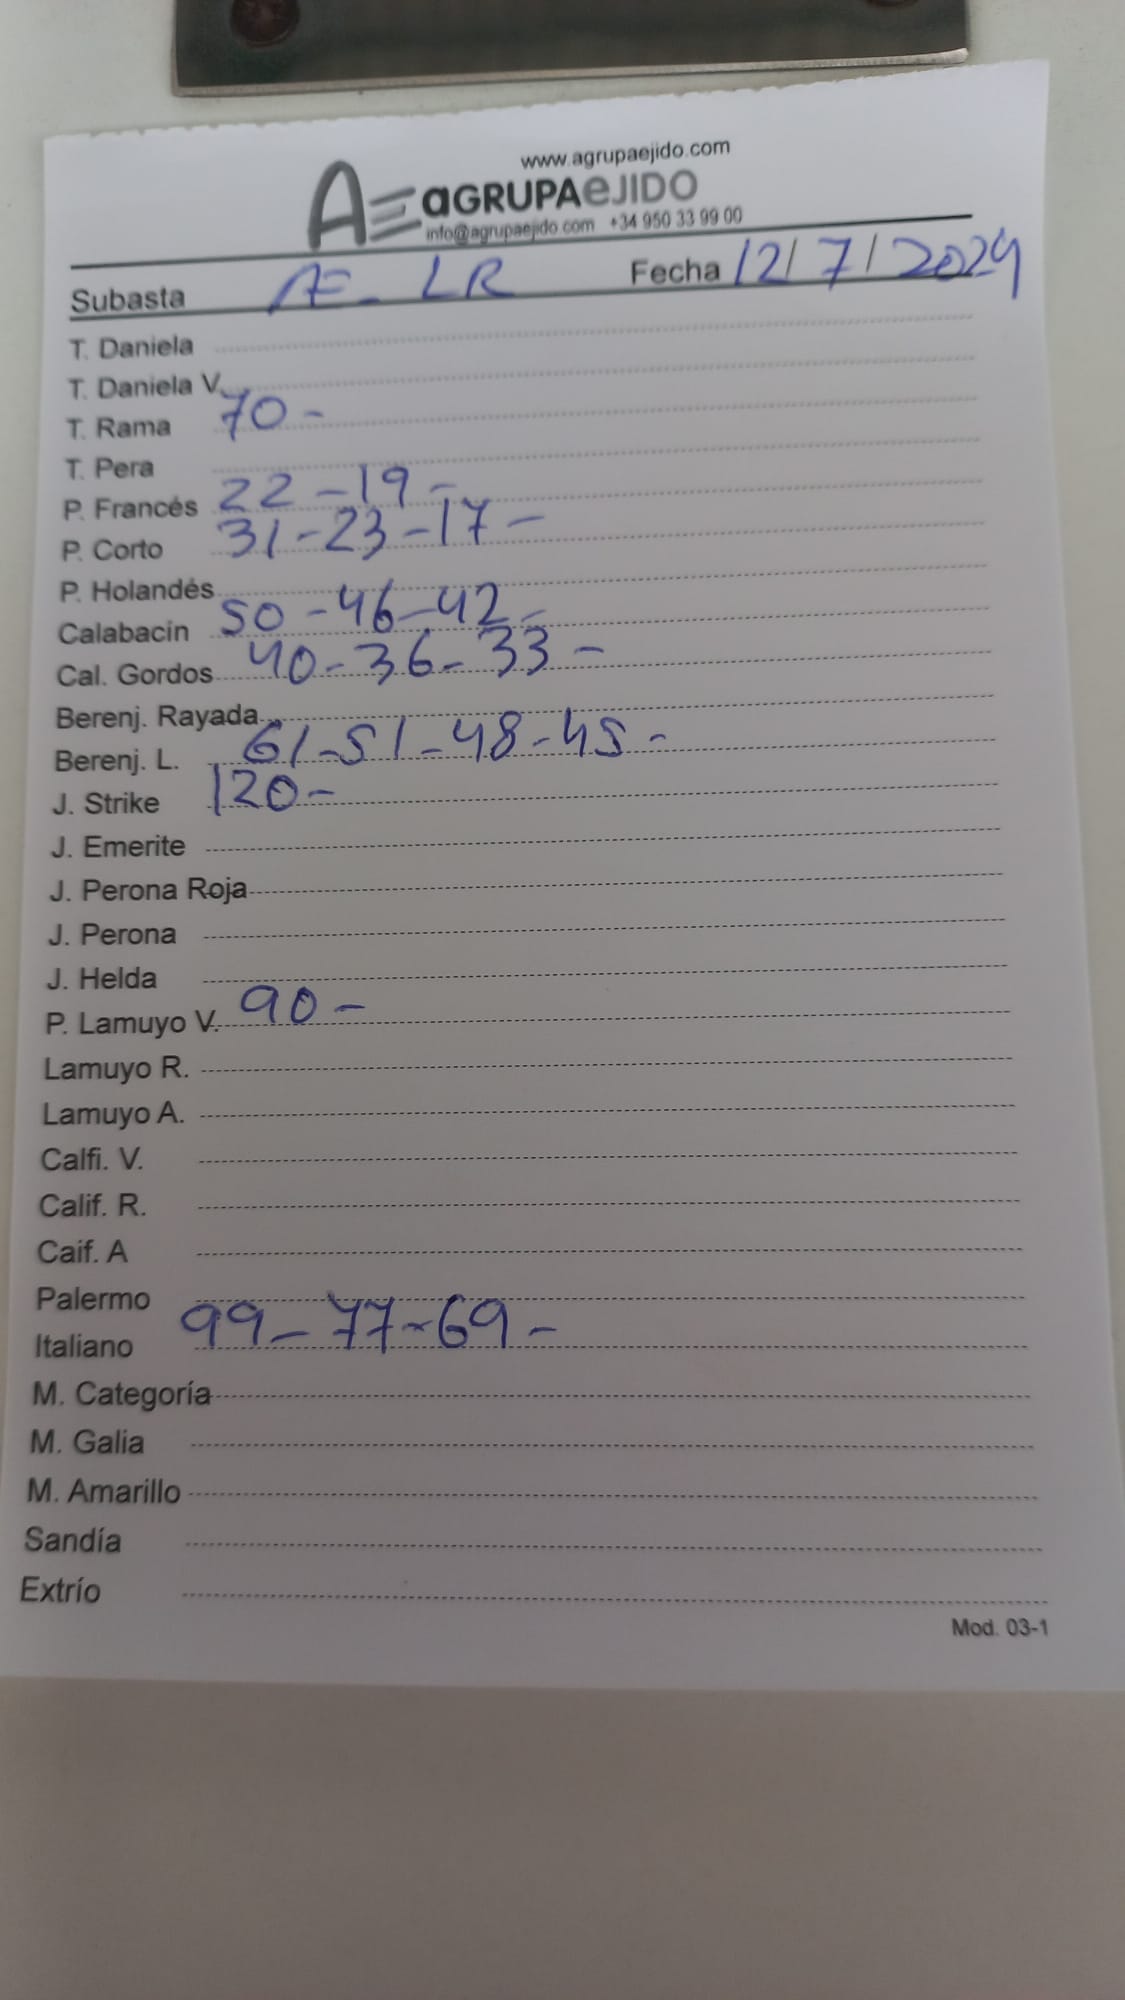 www.agrupaejido.com
AE aGRUPAeJIDO
info@agrupaejido.com +34 950 33 99 00
Subasta AE - LR Fecha 12/7/2024
T. Daniela
T. Daniela V.
T. Rama 70-
T. Pera
P. Francés 22-19-
P. Corto 31-23-17-
P. Holandés
Calabacín 50-46-42-
Cal. Gordos 40-36-33-
Berenj. Rayada
Berenj. L. 61-51-48-45-
J. Strike 120-
J. Emerite
J. Perona Roja
J. Perona
J. Helda
P. Lamuyo V. 90-
Lamuyo R.
Lamuyo A.
Calfi. V.
Calif. R.
Caif. A
Palermo
Italiano 99-77-69-
M. Categoría
M. Galia
M. Amarillo
Sandía
Extrío
Mod. 03-1